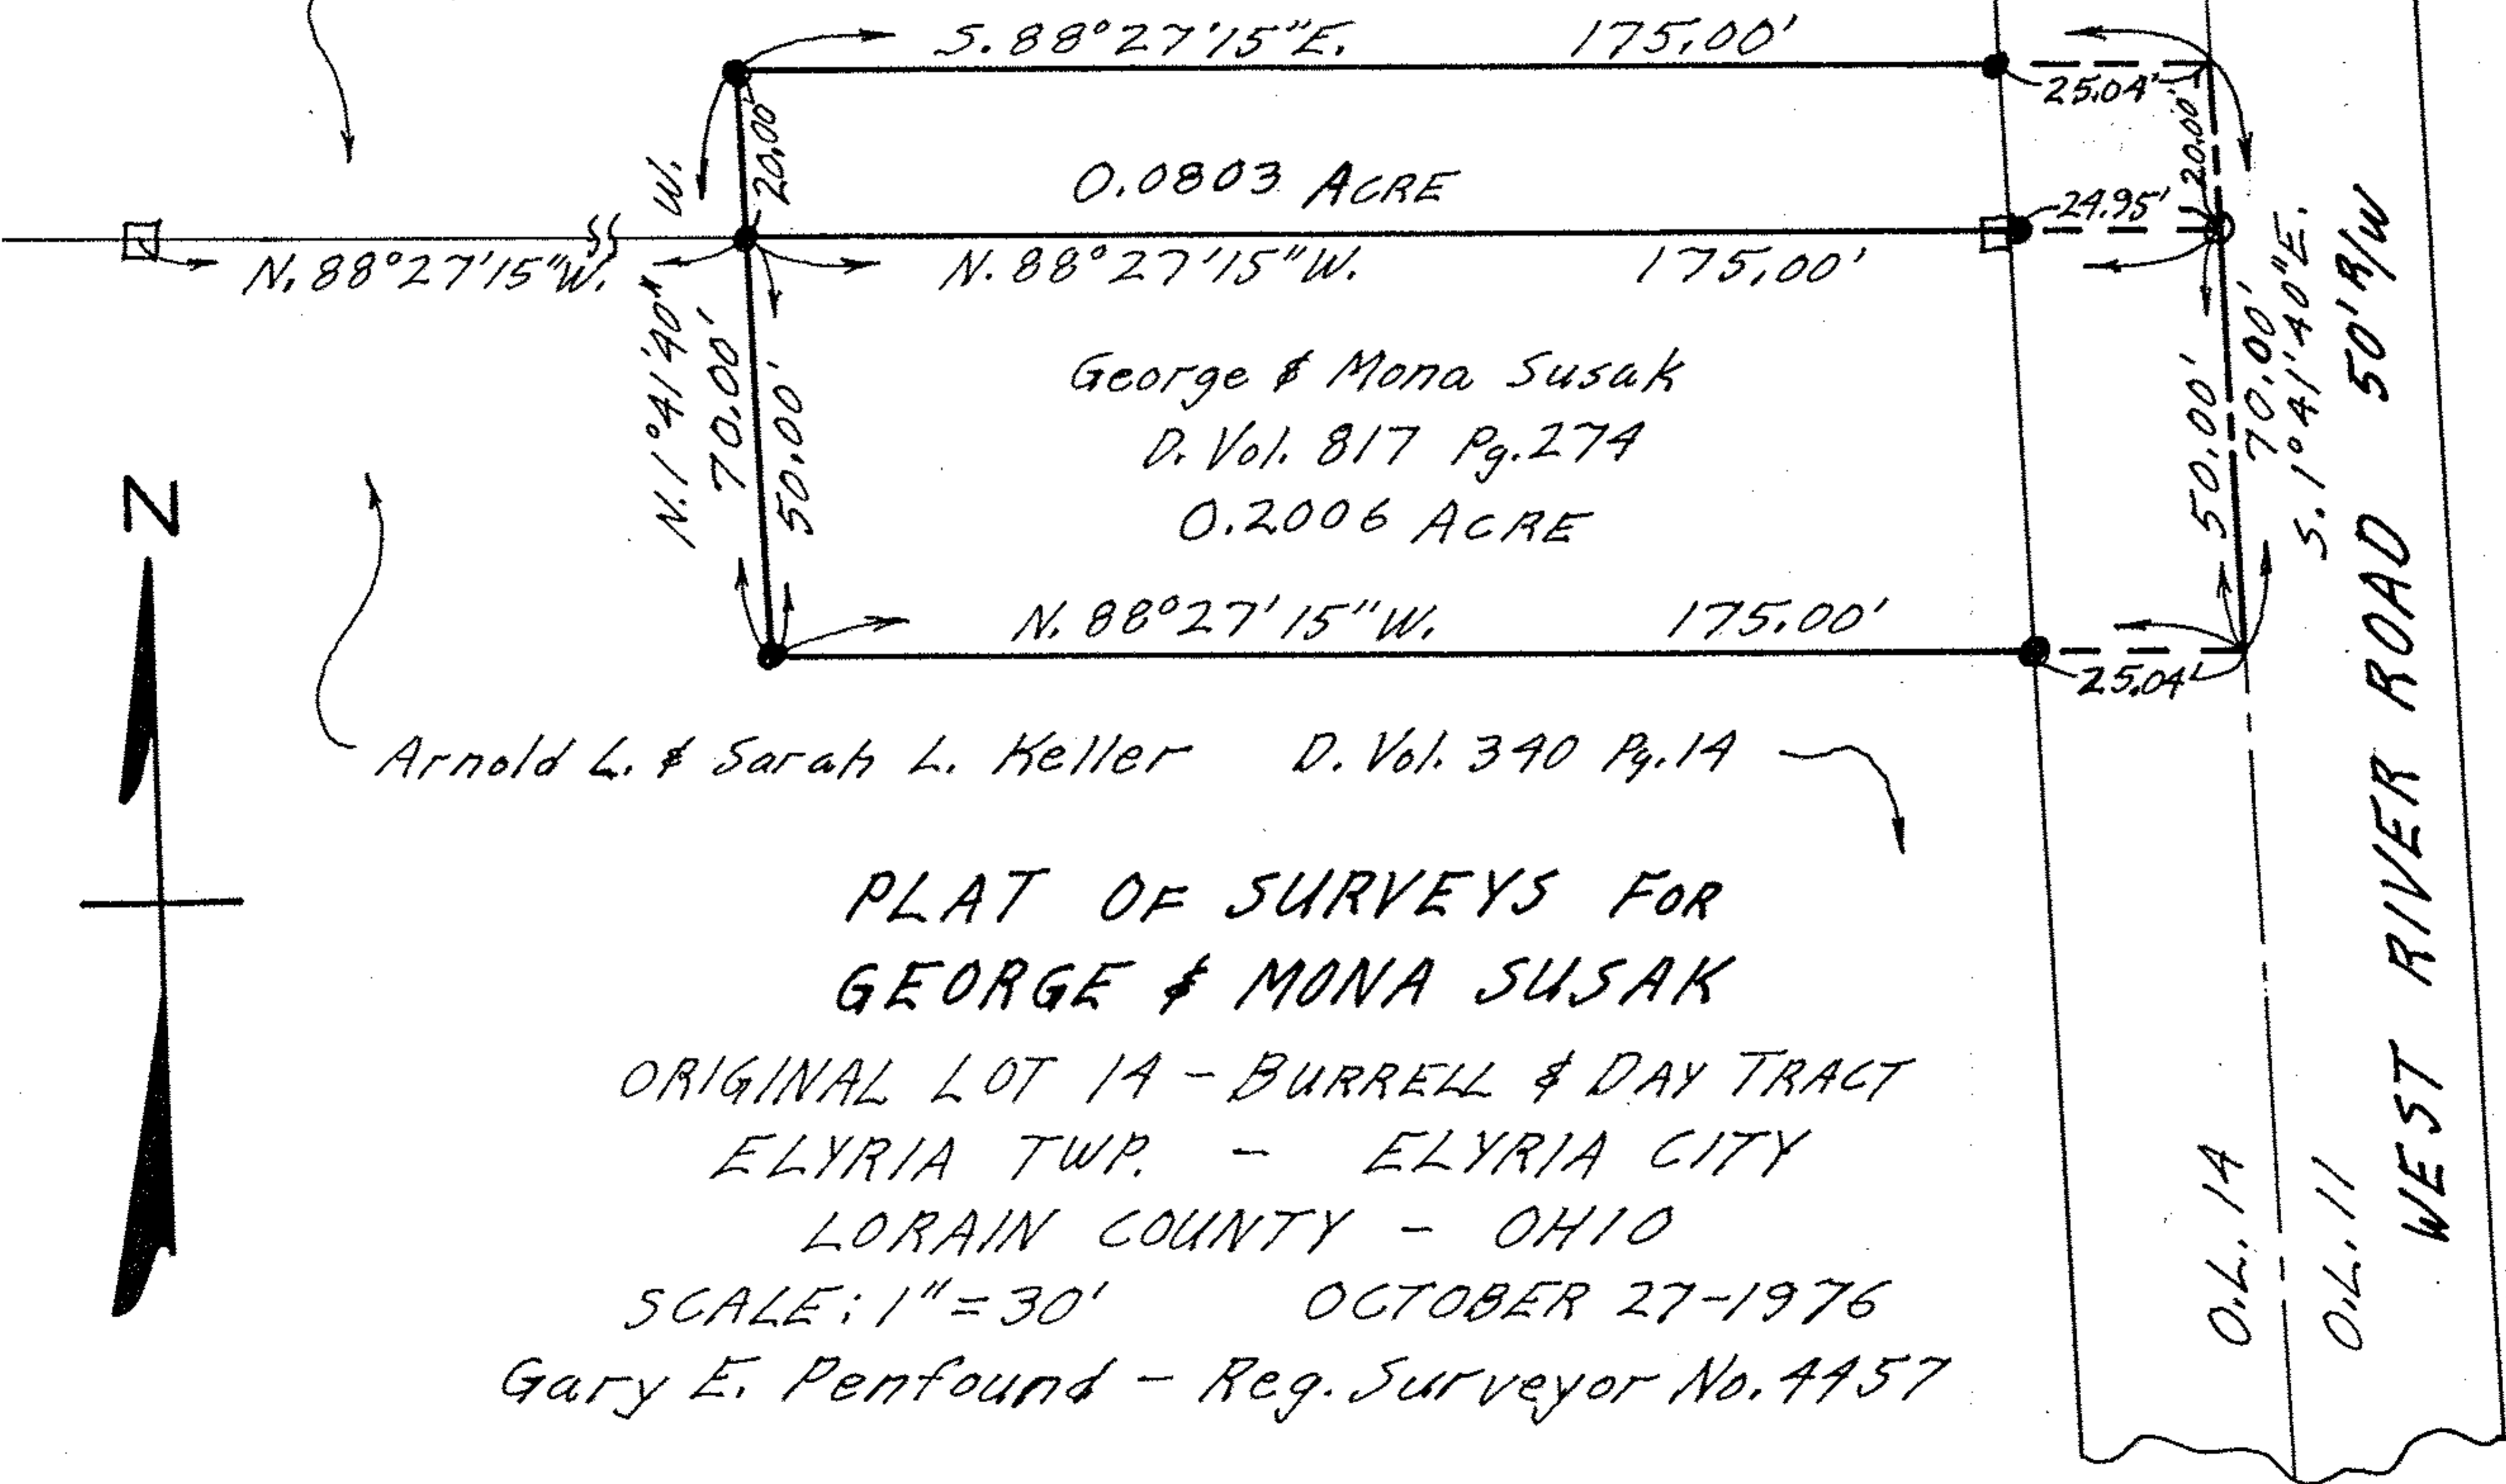 S. 88°27'15"E. 175.00'
25.04'
20.00'
20.00'
0.0803 ACRE
24.95'
N. 88°27'15"W.
N. 88°27'15"W. 175.00'
N. 1°41'40" W.
70.00'
50.00'
George & Mona Susak
D. Vol. 817 Pg. 274
0.2006 ACRE
50.00'
70.00'
S. 1°41'40"E.
50' R/W
N
N. 88°27'15"W. 175.00'
25.04'
Arnold L. & Sarah L. Keller D. Vol. 340 Pg. 14
WEST RIVER ROAD
PLAT OF SURVEYS FOR
GEORGE & MONA SUSAK
ORIGINAL LOT 14 - BURRELL & DAY TRACT
ELYRIA TWP. - ELYRIA CITY
LORAIN COUNTY - OHIO
SCALE: 1"=30' OCTOBER 27-1976
Gary E. Penfound - Reg. Surveyor No. 4457
O.L. 14
O.L. 11